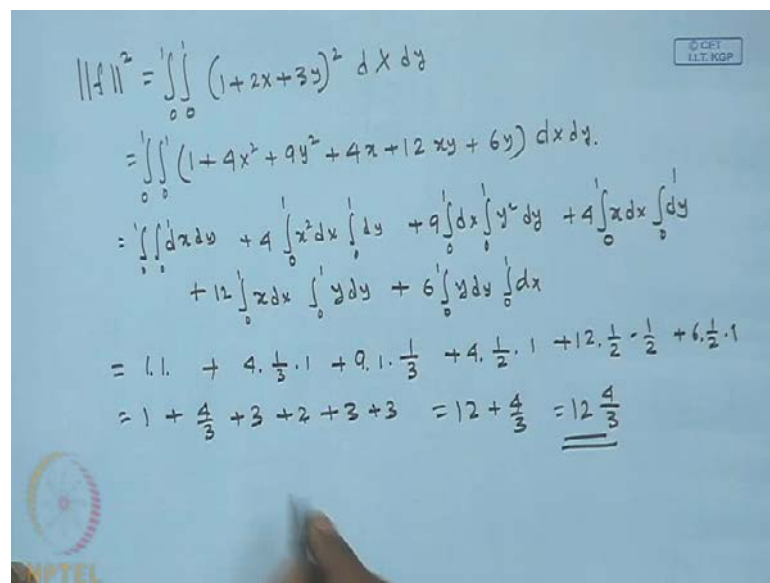 © CET
I.I.T. KGP
||f||² = ¹∫₀ ¹∫₀ (1+2x+3y)² dx dy
= ¹∫₀ ¹∫₀ (1 + 4x² + 9y² + 4x + 12xy + 6y) dx dy.
= ¹∫₀ ∫₀¹ dx dy + 4 ∫₀¹ x² dx ∫₀¹ dy + 9 ∫₀¹ dx ∫₀¹ y² dy + 4 ∫₀¹ x dx ∫₀¹ dy
+ 12 ∫₀¹ x dx ∫₀¹ y dy + 6 ∫₀¹ y dy ∫₀¹ dx
= 1.1. + 4.1/3.1 + 9.1.1/3 + 4.1/2.1 + 12.1/2.1/2 + 6.1/2.1
= 1 + 4/3 + 3 + 2 + 3 + 3 = 12 + 4/3 = 12 4/3
NPTEL